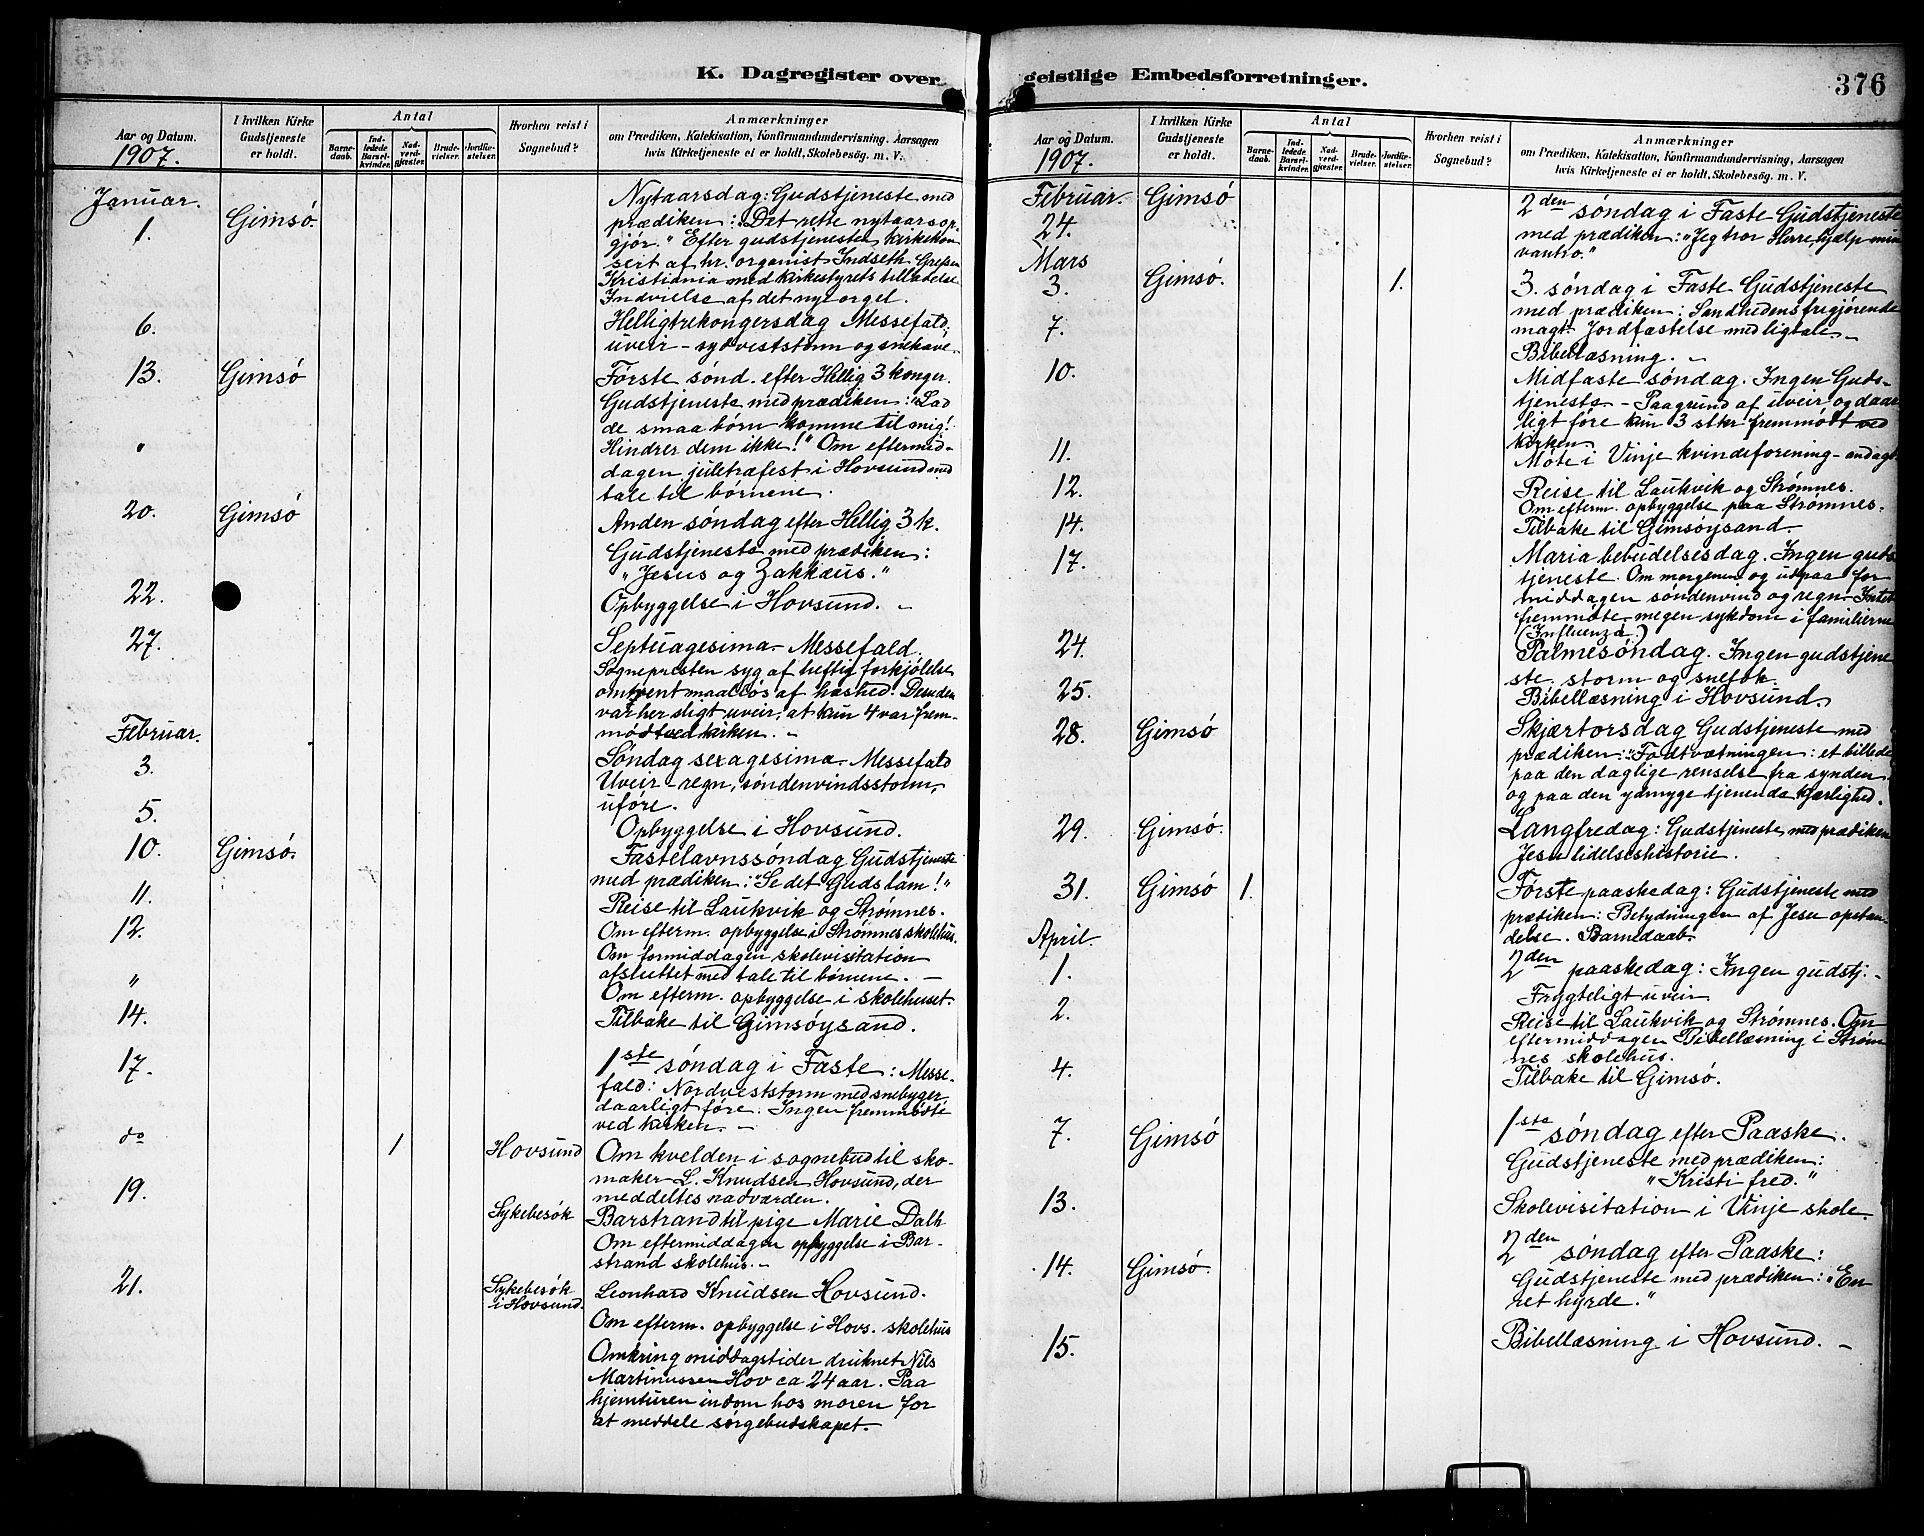 K. Dagregister over
Aar og Datum.
1907.
I hvilken Kirke
Gudstjeneste
er holdt.
Antal
Barne-
daab.
Ind-
ledede
Barsel-
kvinder.
Nad-
verd-
gjester.
Brude-
vielser.
Jordfæ-
stelser.
Hvorhen reist i
Sognebud?
Anmærkninger
om Prædiken, Katekisation, Konfirmandundervisning, Aarsagen
hvis Kirketjeneste ei er holdt, Skolebesög. m. V.
Januar.
1. Gimsö. Nytaarsdag: Gudstjeneste med
prædiken: "Det rette nytaarsop-
gjör." Efter gudstjenesten kirkekon
sert af hr. organist Indseth Grefsen
Kristiania med kirkestyrets tilladelse
Indvielse af det nye orgel.
6. Helligtrekongersdag Messefald,
uveir – sydveststorm og snekave.
13. Gimsö Förste sönd. efter Hellig 3 konger.
Gudstjeneste med prædiken: "Lad
de smaa börn komme til mig!
" Hindrer dem ikke!" Om eftermid-
dagen juletræfest i Hovsund med
tale til börnene.
20. Gimsö Anden söndag efter Hellig 3 k.
Gudstjeneste med prædiken:
"Jesus og Zakkæus."
22. Opbyggelse i Hovsund. –
27. Septuagesima – Messefald.
Sognepresten syg af heftig forkjölelse
omtrent maallös af hæshed. Desuden
var her sligt uveir, at kun 4 var frem-
mödt ved kirken. –
Februar.
3. Söndag sexagesima. Messefald
Uveir – regn, söndenvindsstorm,
uföre.
5. Opbyggelse i Hovsund.
10. Gimsö. Fastelavnssöndag Gudstjeneste
med prædiken: "Se det Guds lam!"
11. Reise til Laukvik og Strømnes.
12. Om efterm. opbyggelse i Strømnes skolehus.
Om formiddagen skolevisitation
" afsluttet med tale til börnene. –
Om efterm. opbyggelse i skolehuset.
14. Tilbake til Gimsöysand.
17. 1ste söndag i Faste: Messe-
fald: Nordveststorm med snebyger,
daarligt före. Ingen fremmödte
ved kirken. –
do 1 Hovsund Om kvelden i sognebud til sko-
maker L. Knudsen Hovsund, der
meddeltes nadværden.
19. Sykebesök Barstrand til pige Marie Dalh
Om eftermiddagen opbyggelse i Bar-
strand skolehus. –
21. Sykebesök
i Hovsund. Leonhard Knudsen Hovsund.
Om efterm. opbyggelse i Hovs. skolehus
Omkring middagstider druknet Nils
Martinussen Hov ca 24 aar. Paa
hjemturen indom hos moren for
at meddele sörgebudskapet. –
geistlige Embedsforretninger.
376
Aar og Datum.
1907.
I hvilken Kirke
Gudstjeneste
er holdt.
Antal
Barne-
daab.
Ind-
ledede
Barsel-
kvinder.
Nad-
verd-
gjester.
Brude-
vielser.
Jordfæ-
stelser.
Hvorhen reist i
Sognebud?
Anmærkninger
om Prædiken, Katekisation, Konfirmandundervisning, Aarsagen
hvis Kirketjeneste ei er holdt, Skolebesög. m. V.
Februar. Gimsö
24. 2den söndag i Faste Gudstjeneste
med prædiken: "Jeg tror Herre, hjælp min
vantro."
Mars
3. Gimsö. 1. 3. söndag i Faste Gudstjeneste
med prædiken: Sandhedens frigjörende
magt. Jordfæstelse med ligtale. –
7. Bibellæsning. –
10. Midfaste söndag. Ingen Guds-
tjeneste – Paa grund af uveir og daar
ligt före kun 3 stkr fremmödt ved
kirken.
11. Möte i Vinje kvindeforening – andagt.
12. Reise til Laukvik og Strømnes.
Om efterm. opbyggelse paa Strømnes.
14. Tilbake til Gimsöysand –
17. Maria bebudelsesdag. Ingen guds
tjeneste. Om morgenen og utpaa for
middagen söndenvind og regn – Intet
fremmöte – megen sykdom i familierne
(Influenza.)
24. Palmesöndag. Ingen gudstjene
ste. storm og snefok.
25. Bibellæsning i Hovsund.
28. Gimsö Skjærtorsdag Gudstjeneste med
prædiken: "Fodtvætningen: et billede
paa den daglige renselse fra synden
og paa den ydmyge tjenende kjærlighed.
29. Gimsö. Langfredag: Gudstjeneste med prædiken
Jesu lidelseshistorie.
31. Gimsö 1. Förste paaskedag: Gudstjeneste med
prædiken: Betydningen af Jesu opstan
delse. Barnedaab.
April.
1. 2den paaskedag: Ingen gudstj. –
Frygteligt uveir
2. Reise til Laukvik og Strømnes. Om
eftermiddagen Bibellæsning i Strøm
nes skolehus.
4. Tilbake til Gimsö.
7. Gimsö 1ste söndag efter Paaske.
Gudstjeneste med prædiken:
"Kristi fred."
13. Skolevisitation i Vinje skole.
14. Gimsö. 2den söndag efter Paaske:
Gudstjeneste med prædiken: "En
ret hyrde."
15. Bibellæsning i Hovsund. –